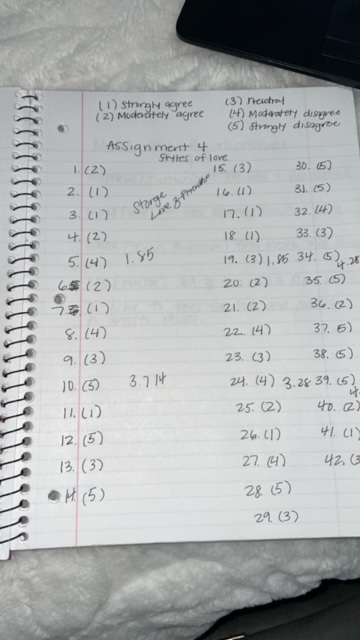 (1) Strongly agree (3) Neutral
(2) Moderately agree (4) Moderately disagree
(5) Strongly disagree
Assignment 4
Styles of love
1. (2) 15. (3) 30. (5)
2. (1) Storge 16. (1) 31. (5)
3. (1) Love & 17. (1) 32. (4)
4. (2) 18 (1) 33. (3)
5. (4) 1.85 19. (3) 1.85 34. (5)
6. (2) 20. (2) 35. (5)
7. (1) 21. (2) 36. (2)
8. (4) 22. (4) 37. 5)
9. (3) 23. (3) 38. (5)
10. (5) 3.714 24. (4) 3.28 39. (5)
11. (1) 25. (2) 40. (2)
12. (5) 26. (1) 41. (1)
13. (3) 27. (4) 42. (3
14. (5) 28. (5)
29. (3)